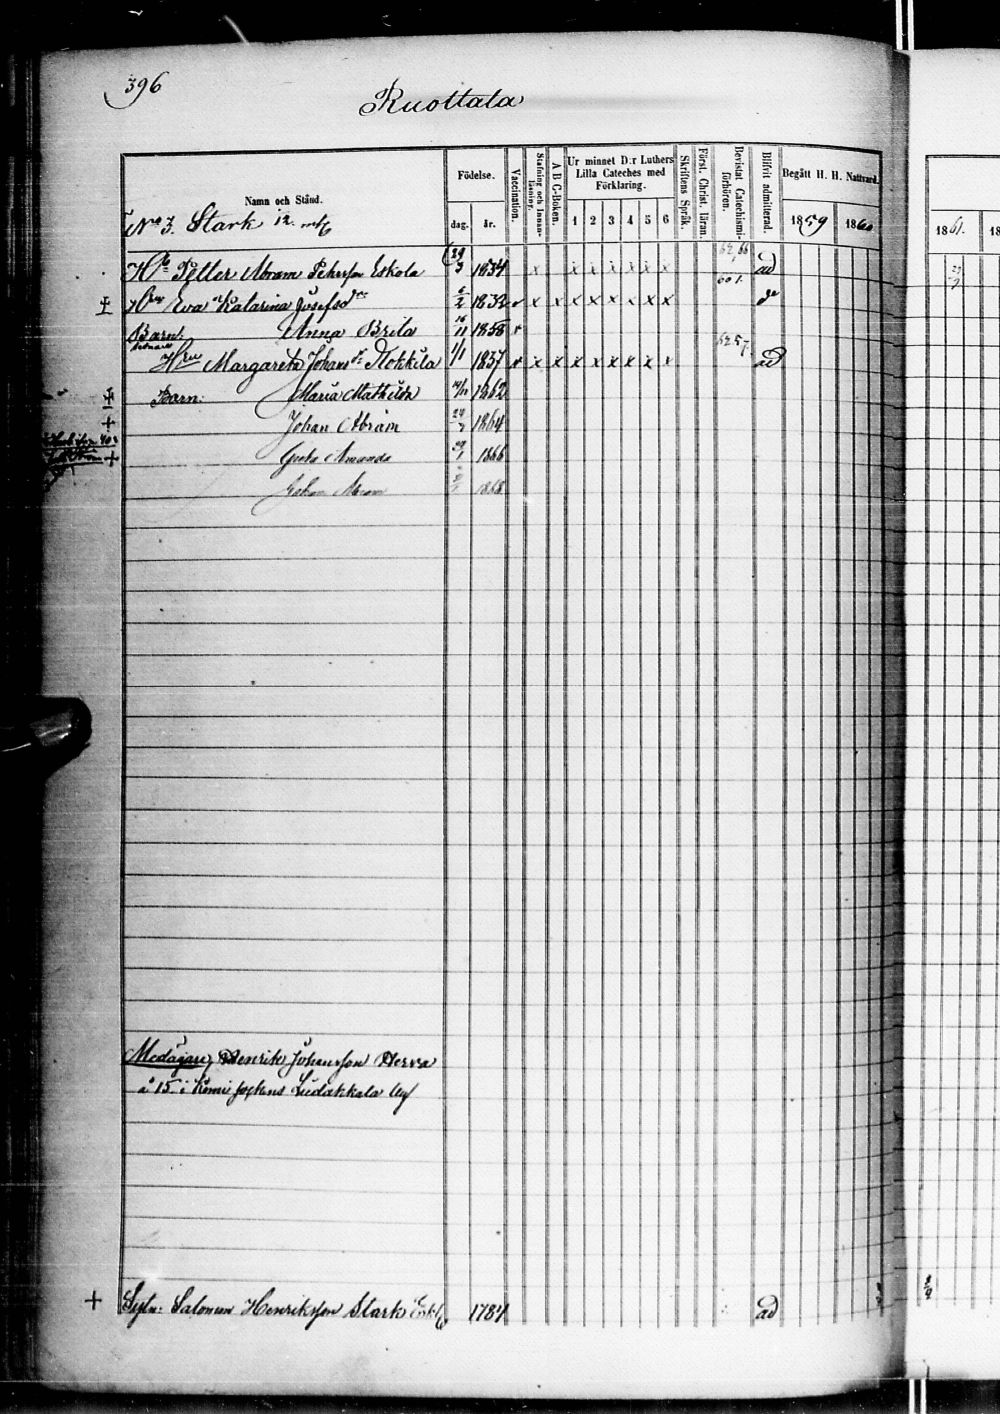 396
Ruottala
Namn och Stånd.
Födelse.
dag. år.
Vaccination.
Stafning och Innanläsning.
A B C-Boken.
Ur minnet D:r Luthers Lilla Cateches med Förklaring.
1 2 3 4 5 6
Skriftens Språk.
Först. Christ. läran.
Bevistat Catechismi-förhören.
Blifvit admitterad.
Begått H. H. Nattvard.
1859 1860
1861.
No 3. Stark
Petter Abram Pehrsson Eskola 29/3 1834 x x x x x x x ad
Eva Katarina Josefsd 6/2 1832 x x x x x x x x
Barn. Anna Brita 16/11 1858
Hru Margareta Johans Kokkila 1/1 1837 x x x x x x x x x ad
Barn: Maria Mathilda 1862
+ Johan Abram 1864
+ Greta Amanda 1866
Johan Abram 1868
Medägare, Henrik Johansson Herva
i Kemi sockens
+ Sytn: Salomon Henriksson Stark 1787 ad